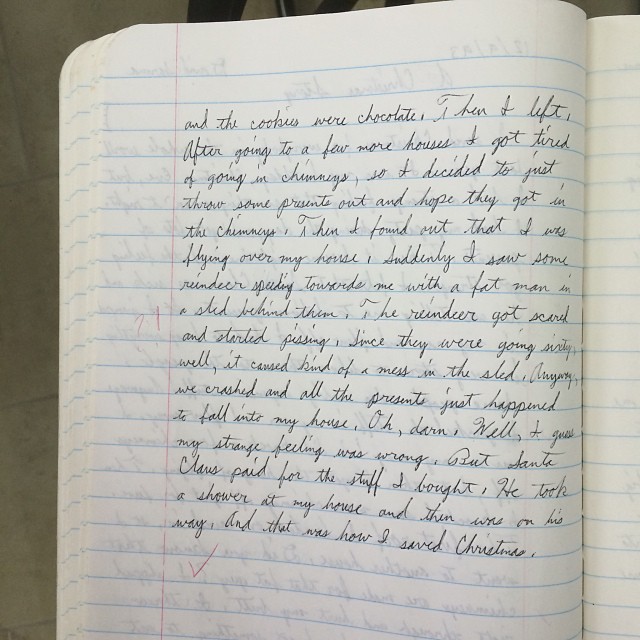 and the cookies were chocolate. Then I left.
After going to a few more houses I got tired
of going in chimneys, so I decided to just
throw some presents out and hope they got in
the chimneys. Then I found out that I was
flying over my house. Suddenly I saw some
reindeer speeding towards me with a fat man in
a sled behind them. The reindeer got scared
?!
and started pissing. Since they were going sixty,
well, it caused kind of a mess in the sled. Anyway,
we crashed and all the presents just happened
to fall into my house. Oh, darn. Well, I guess
my strange feeling was wrong. But Santa
Claus paid for the stuff I bought. He took
a shower at my house and then was on his
way. And that was how I saved Christmas.